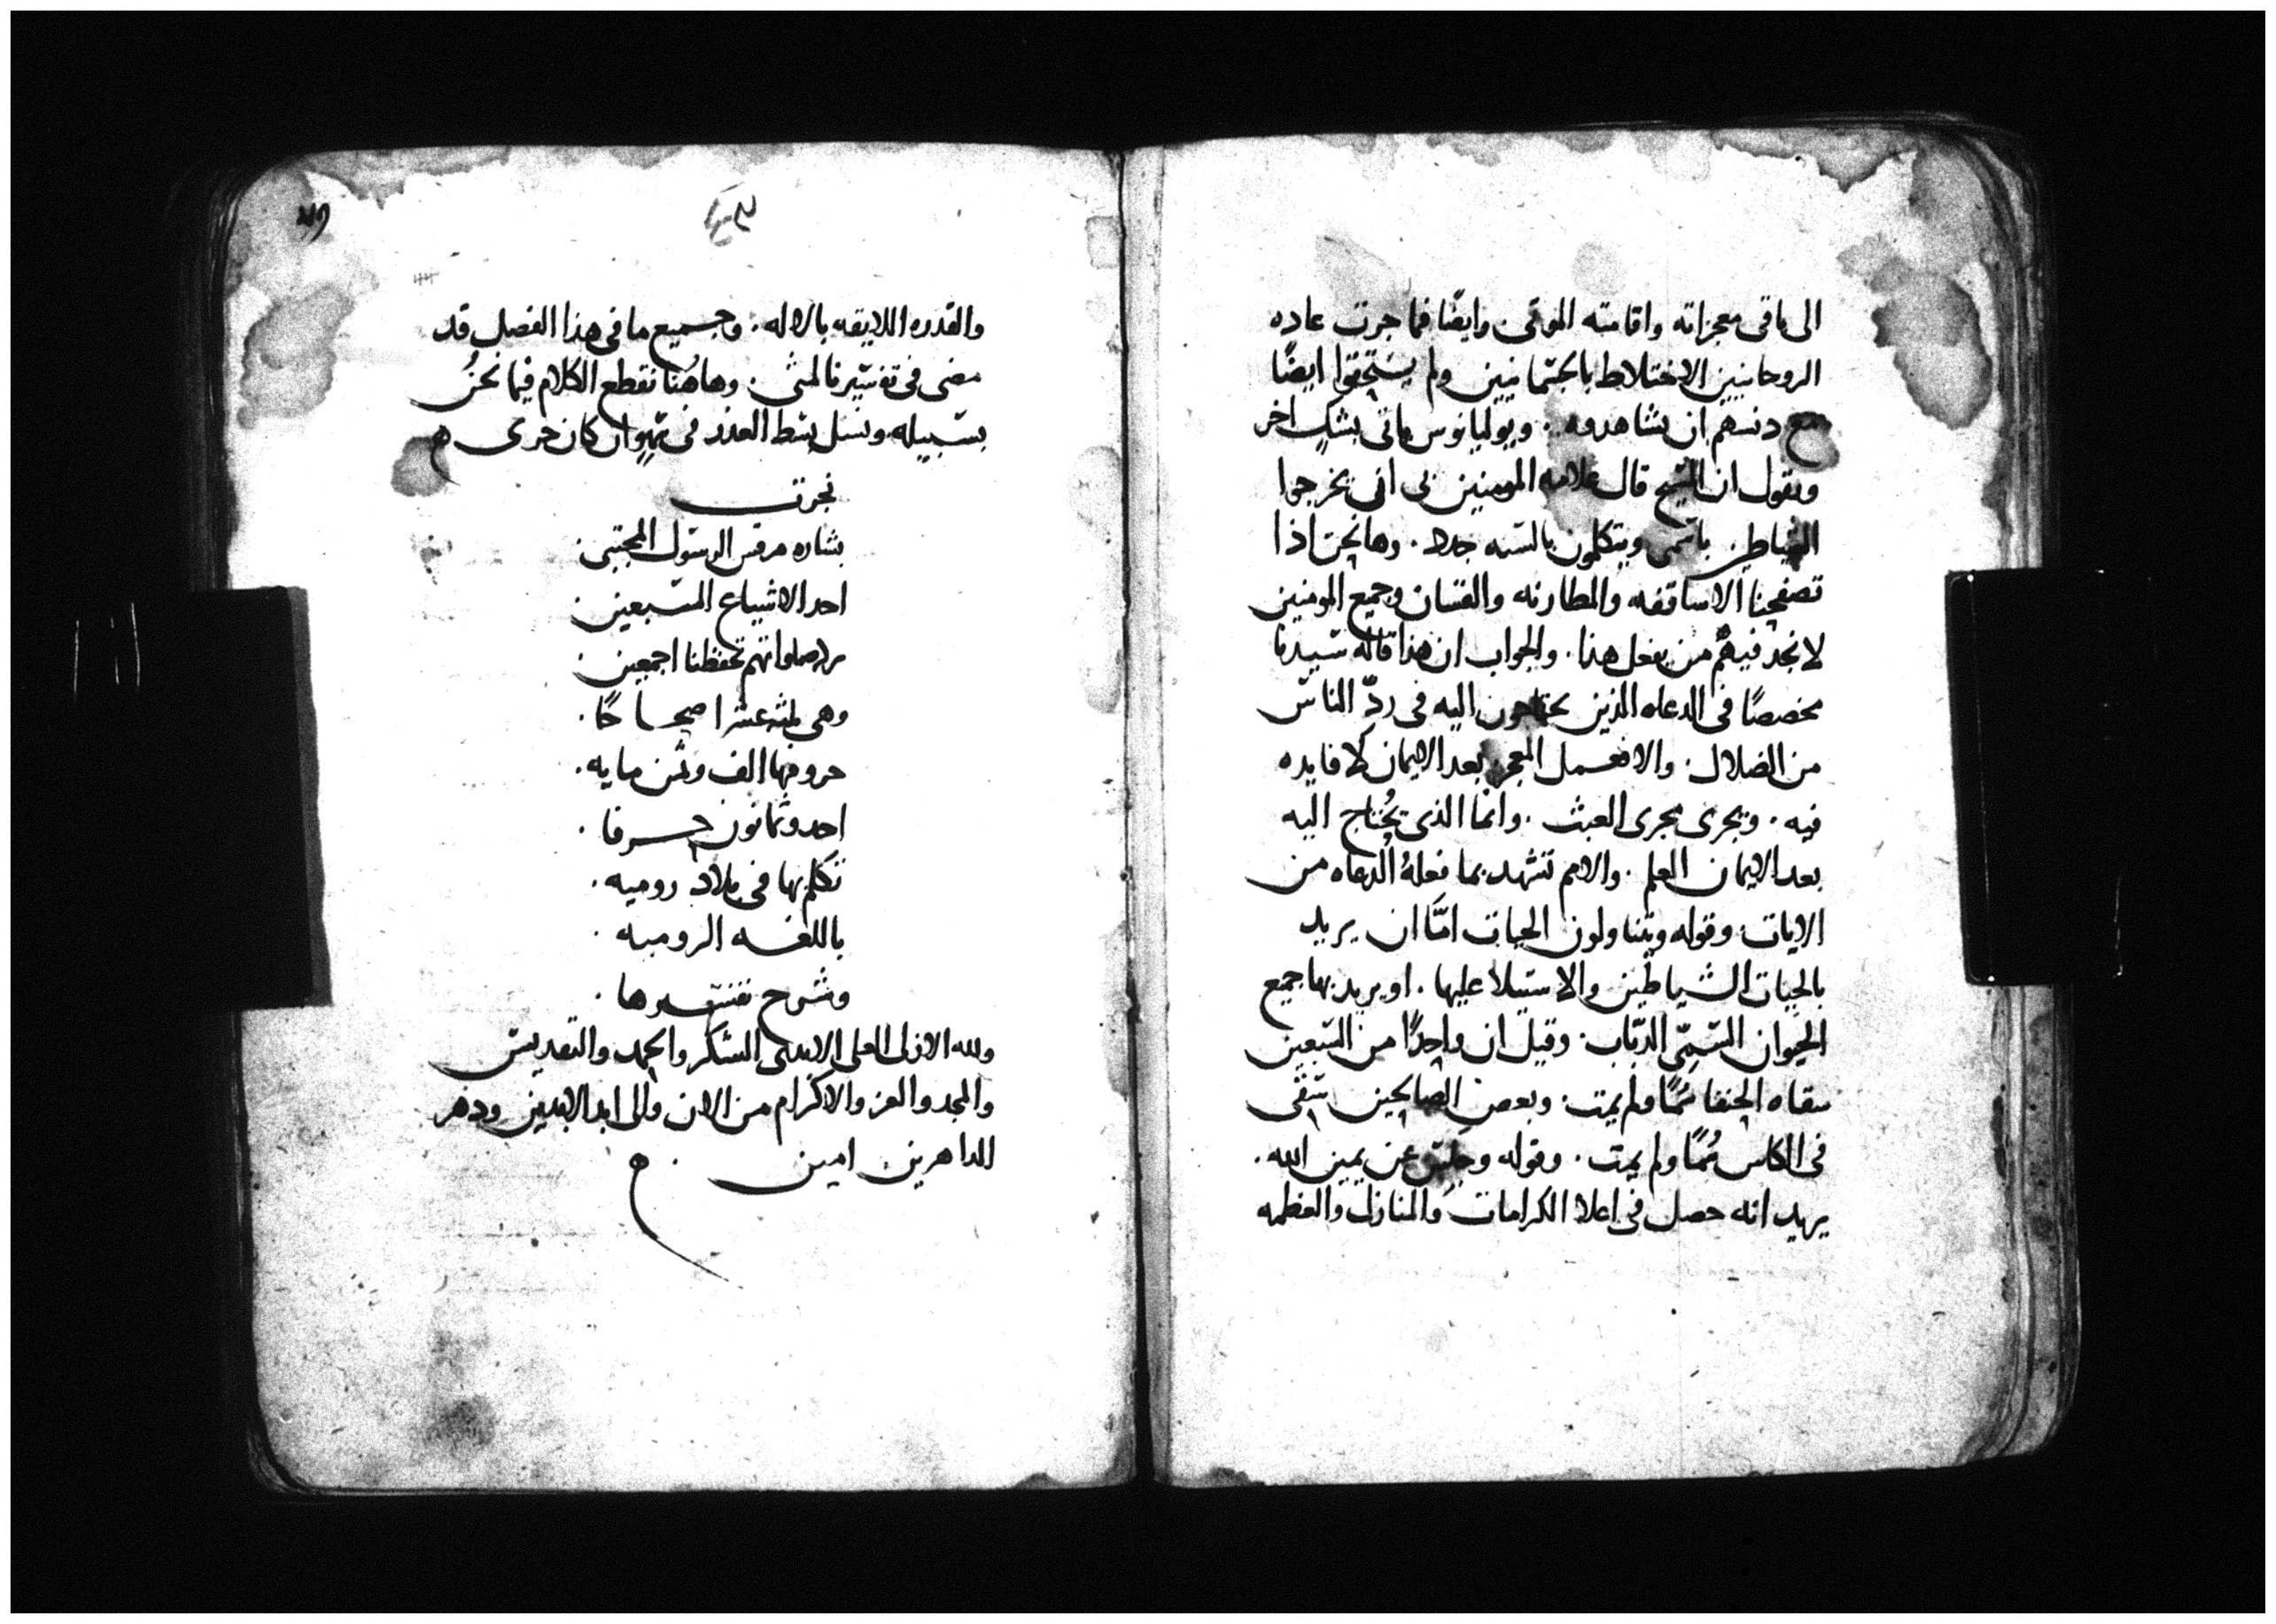 الى باقى معجزاته واقامته الموتى. وايضًا فما جرت عاده
الروحانيين الاختلاط بالجسمانيين ولم يستحقوا ايضًا
مع دنسهم ان يشاهدوه. ويوليانوس ياتى بشك اخر
ويقول ان المسيح قال علامه المومنين بى انى يخرجوا
الشياطين باسمى ويتكلمون بالسنه جدد. وها نحن اذا
تصفحنا الاساقفه والمطارنه والقسان وجميع المومنين
لا نجد فيهم من يفعل هذا. والجواب ان هذا قاله سيدنا
مخصصًا فى الدعاه الذين يحتاجون اليه فى ردّ الناس
من الضلال. والا فعمل المعجز بعد الايمان لا فايده
فيه. ويجرى مجرى العبث. وانما الذى يُحتاج اليه
بعد الايمان العلم. والامم تشهد بما فعلهُ الدعاه من
الايات. وقوله ويتناولون الحيات امّا ان يريد
بالحيات الشياطين والاستيلا عليها. او يريد بها جميع
الحيوان السمّى الدبّاب. وقيل ان واحدًا من السبعين
سقاه الحنفا سُمًا ولم يمت. وبعض الصالحين سقى
فى الكاس سُمًا ولم يمت. وقوله وجلس عن يمين الله.
يريد انه حصل فى اعلا الكرامات والمنازل والعظمه
والقدره اللايقه بالاله. وجميع ما فى هذا الفصل قد
مضى فى تفسيرنا لمتى. وهاهُنا نقطع الكلام فيما نحنُ
بسبيله. ونسل بسط العذر فى سهو ان كان جرى
نجزت
بشاره مرقس الرسول المجتبى.
احد الاشياع السبعين.
صلواتهم تحفظنا اجمعين.
وهى ثلثه عشر اصحاحًا.
حروفها الف وثمن مايه.
احد وثمانون حرفا.
تكلم بها فى بلاد روميه.
باللغه الروميه.
وشرح تفسيرها.
ولله الازلى العلى الابدى الشكر والحمد والتقديس
والمجد والعز والاكرام من الان والى ابد الابدين ودهر
الداهرين امين.